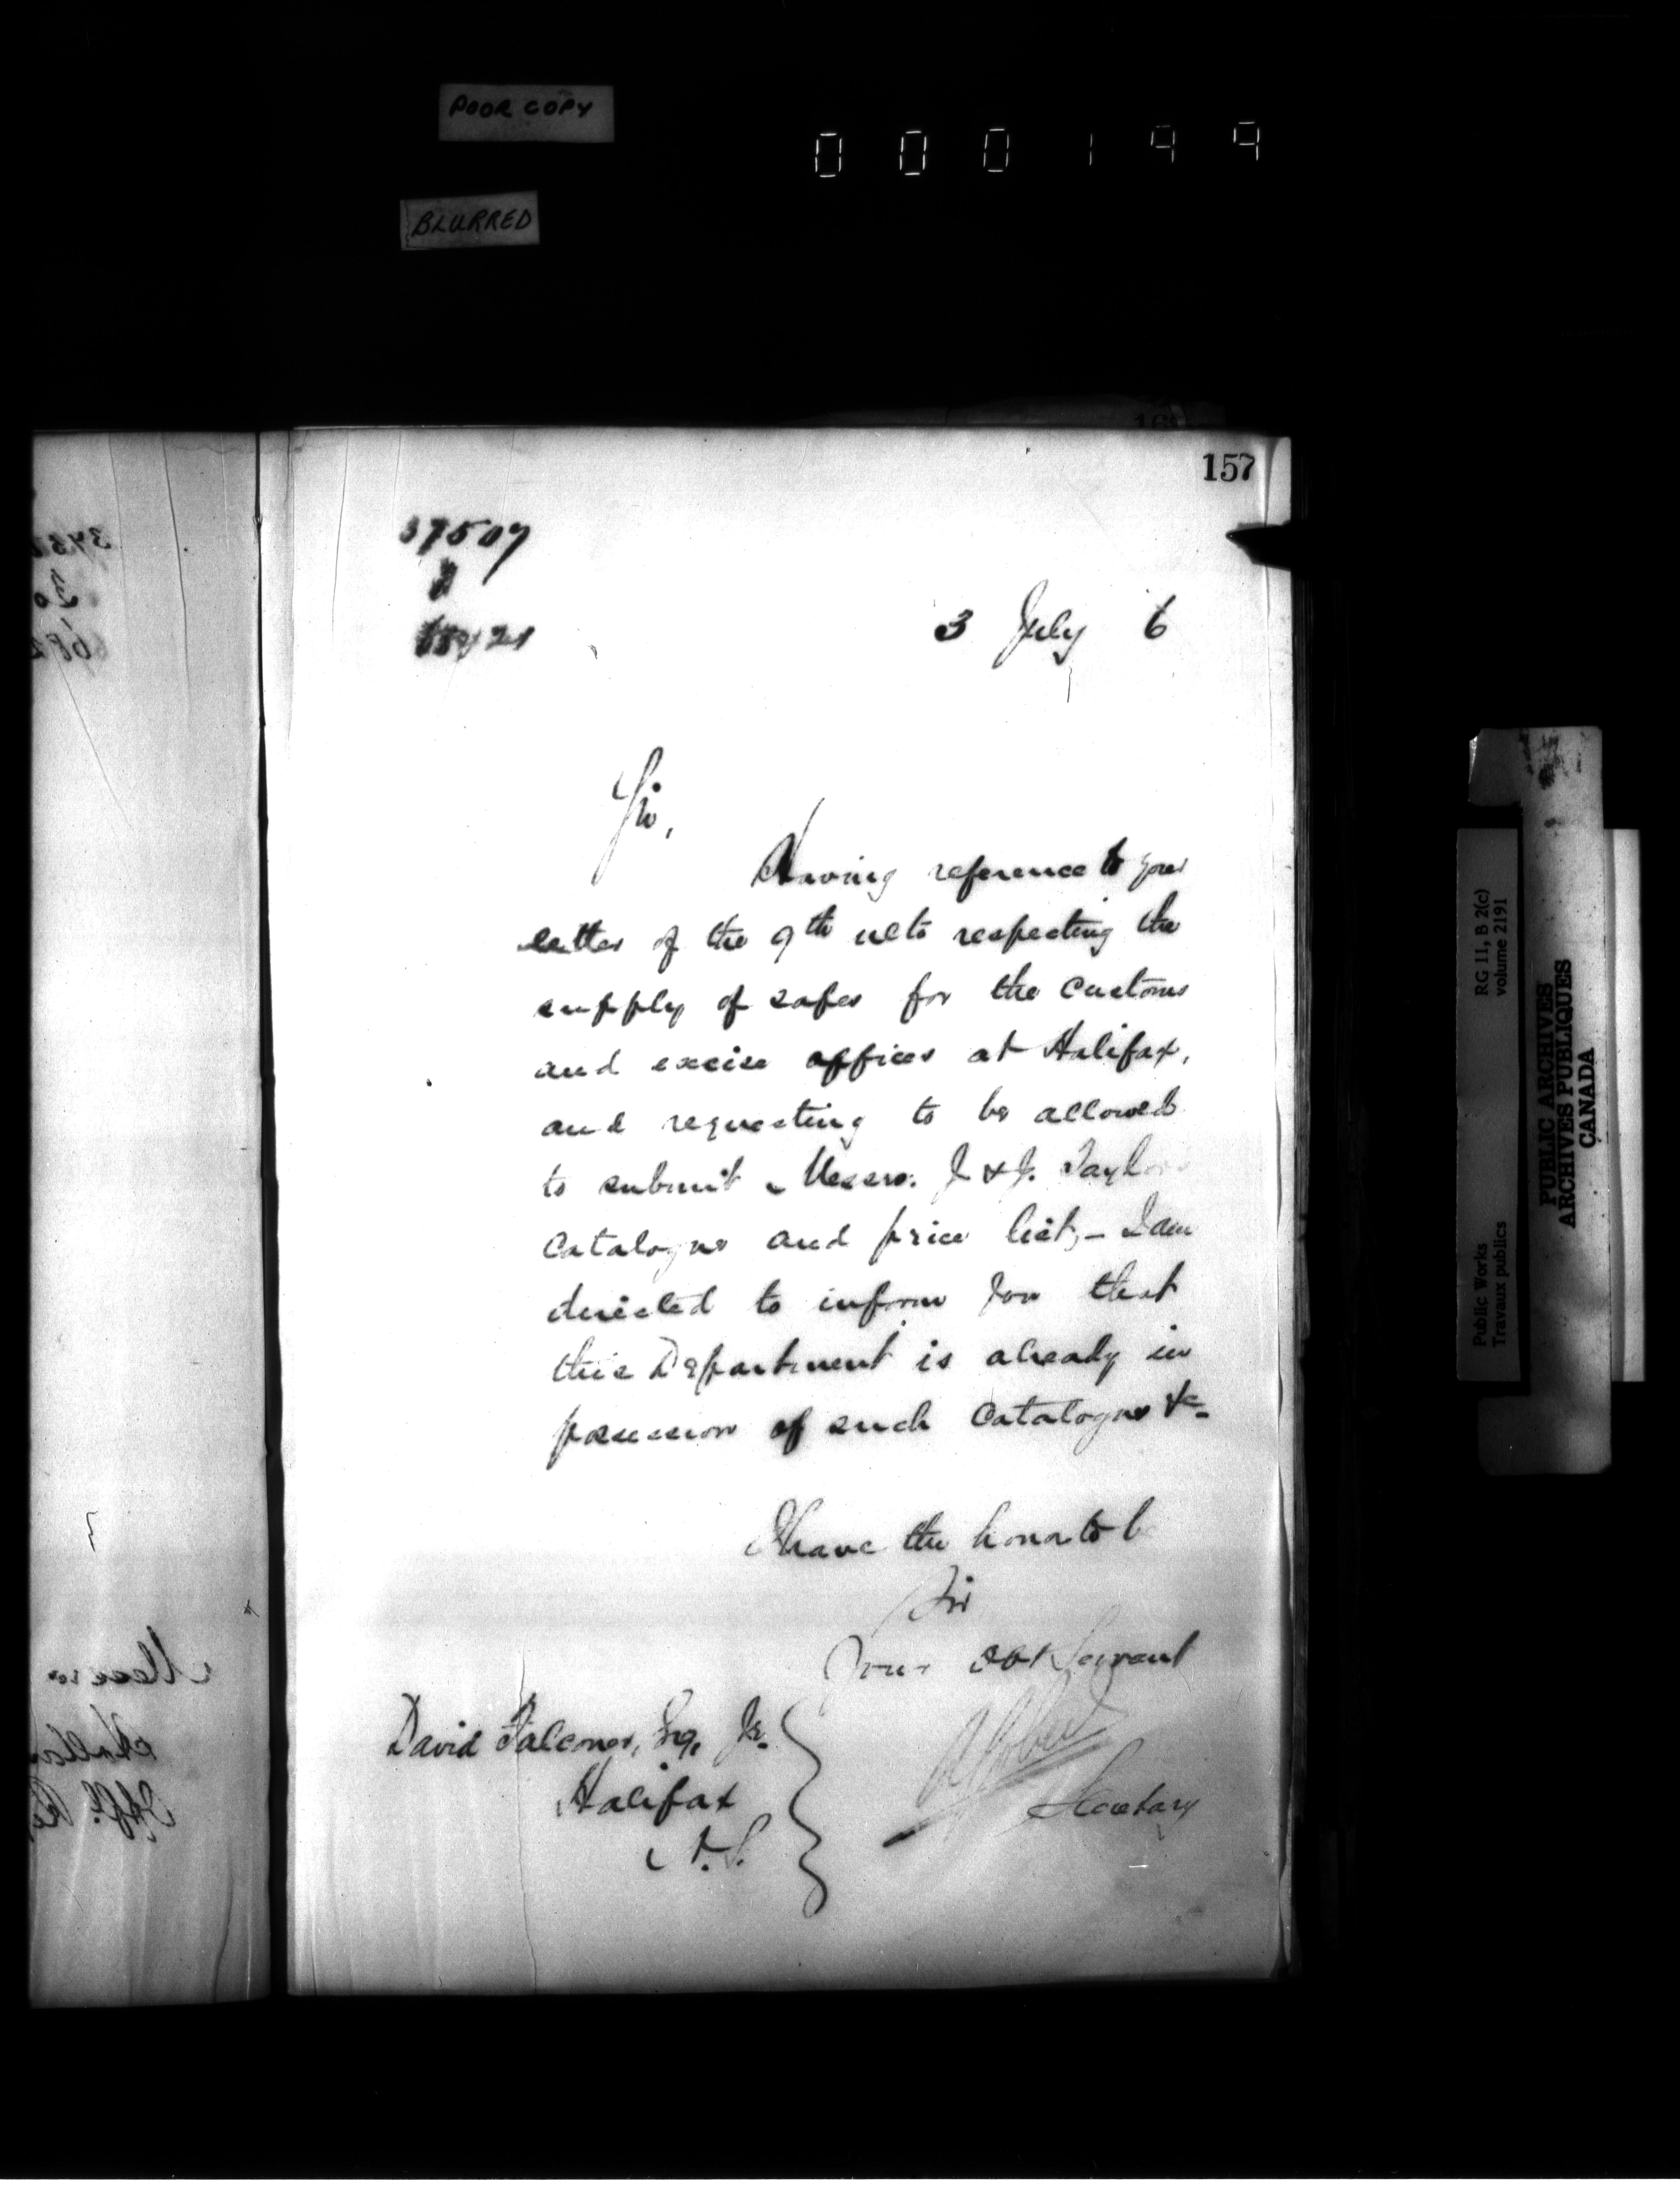 POOR COPY
000199
BLURRED
157
37507
3 July 6
Sir,
Having reference to your
letter of the 9th ulto respecting the
supply of safes for the Customs
and excise offices at Halifax,
and requesting to be allowed
to submit Messrs. J & J. Taylor
Catalogue and price list, - I am
directed to inform you that
this Department is already in
possession of such Catalogue &c.
I have the honor to be
Sir
Your Obt Servant
Secretary
David Falconer, Esq, Jr.
Halifax
N.S.
RG 11, B 2(c)
volume 2191
Public Works
Travaux publics
PUBLIC ARCHIVES
ARCHIVES PUBLIQUES
CANADA